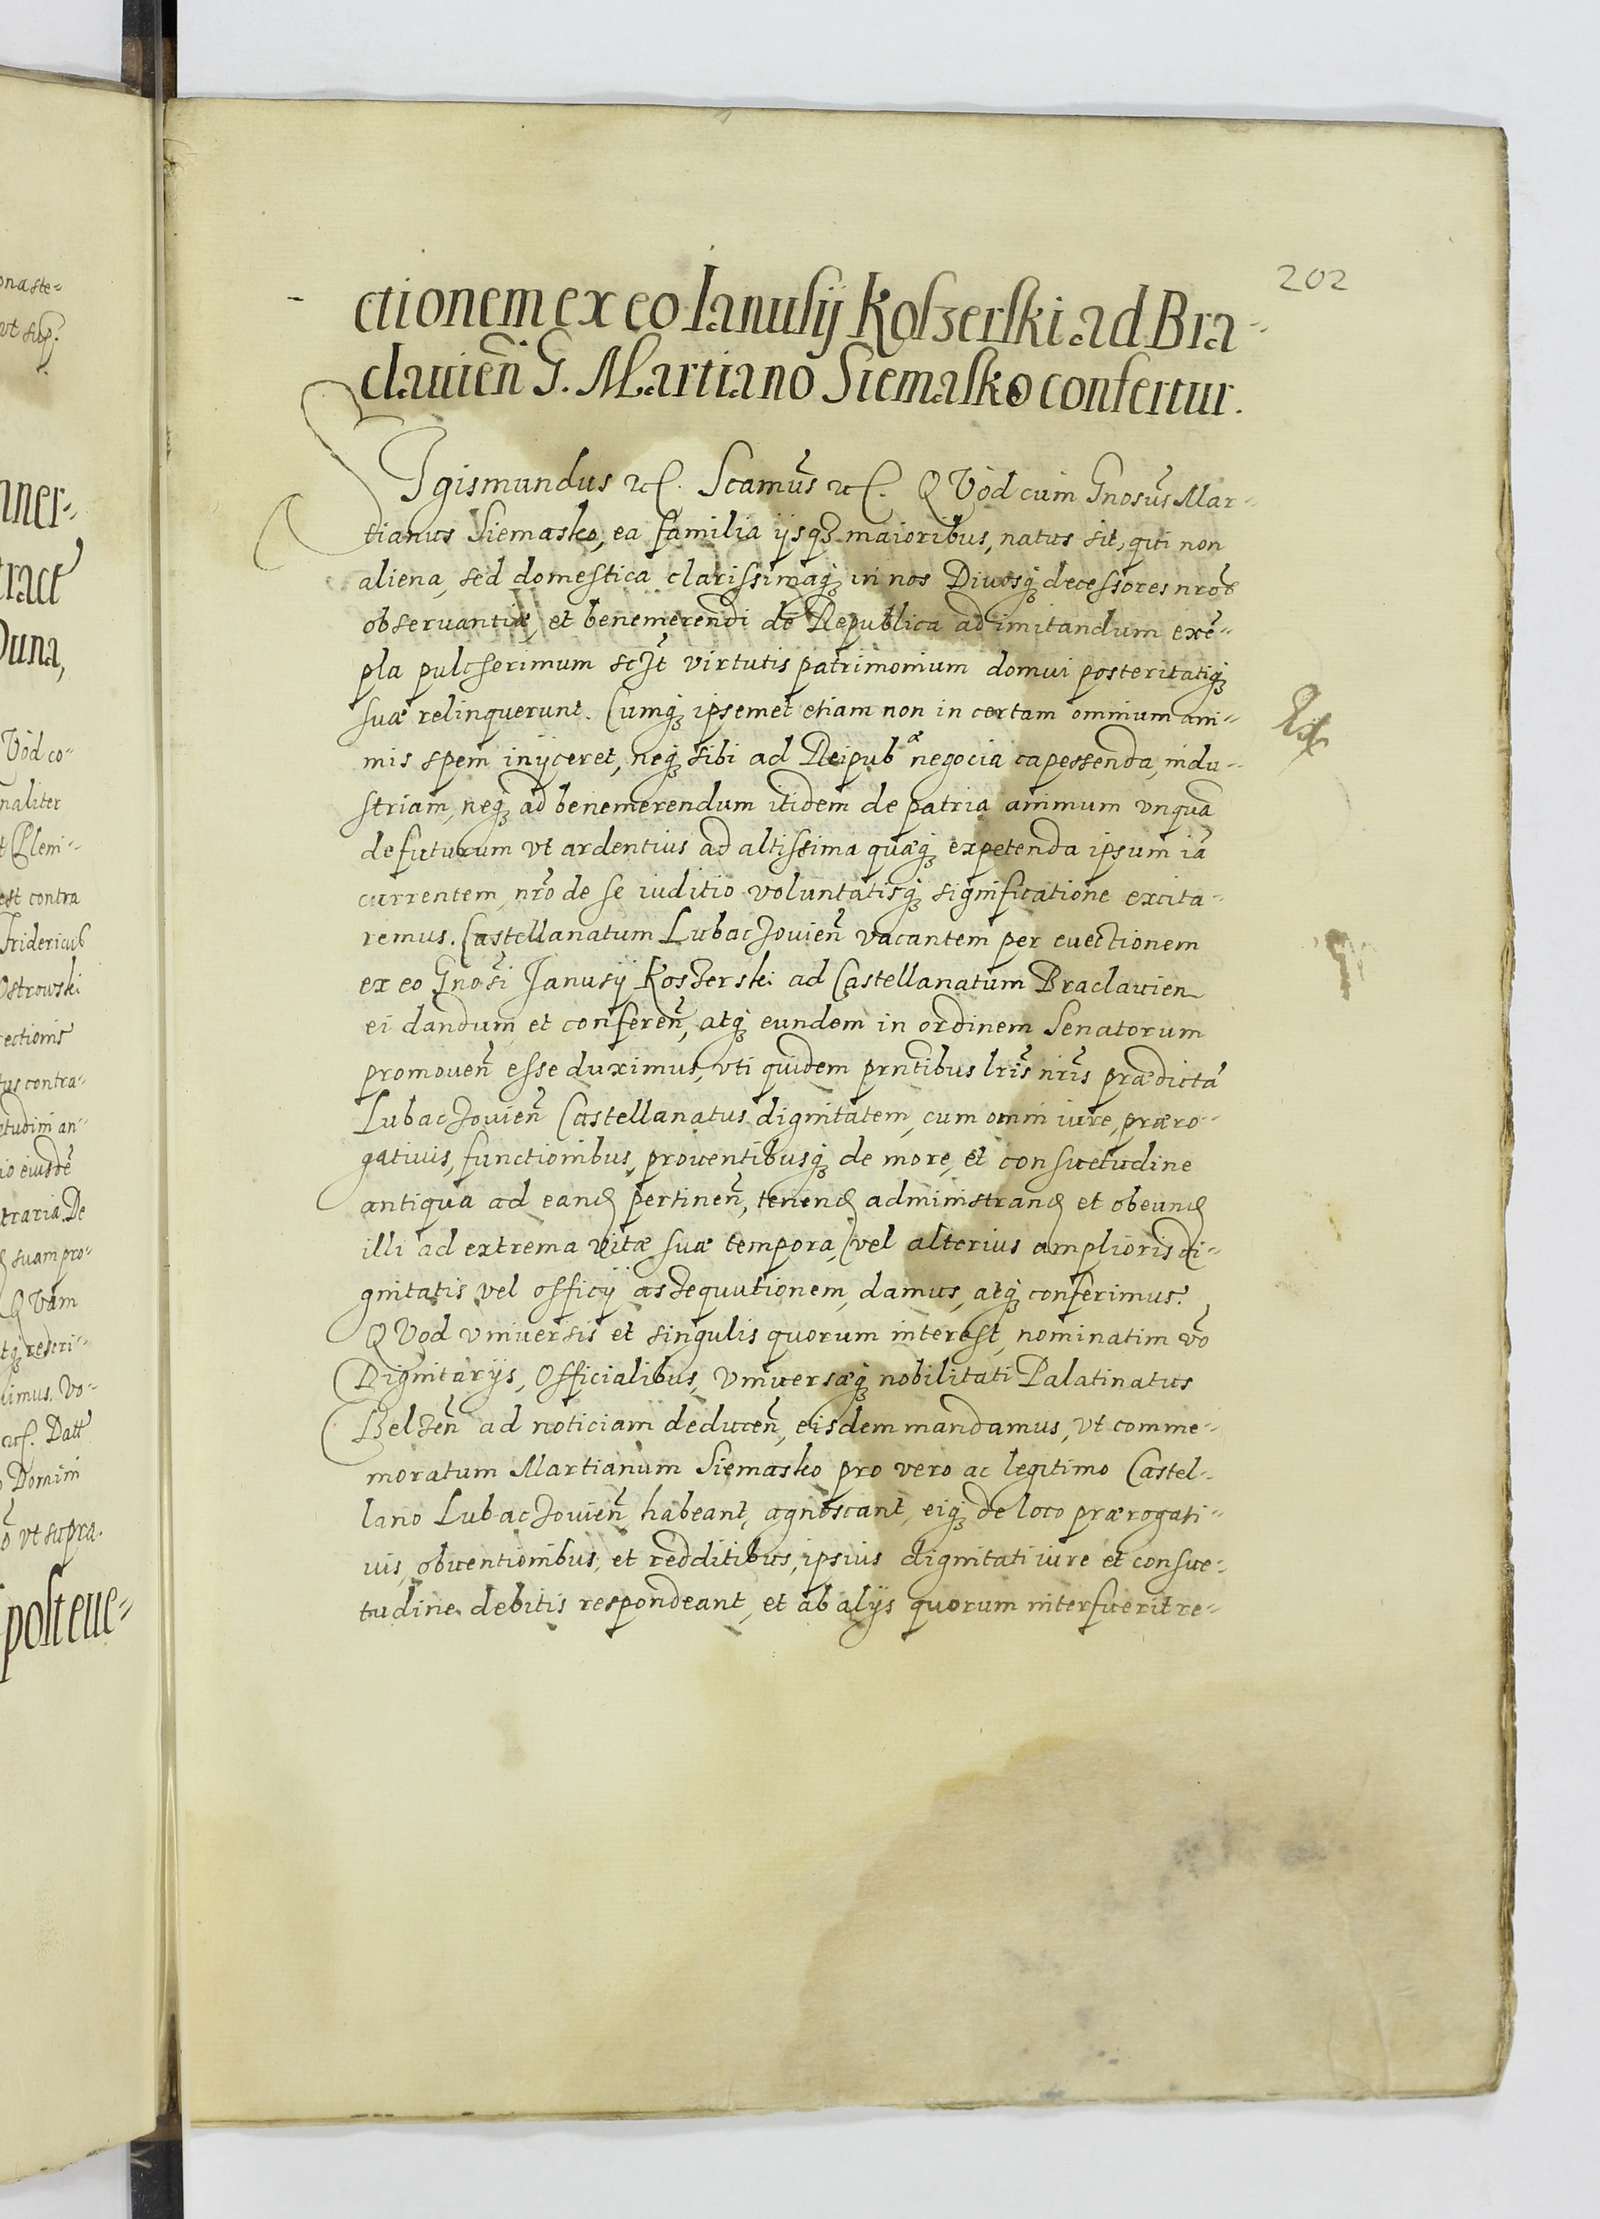 202
ctionem ex eo Ianusij Koszerski ad Bra-
clauień G. Martiano Siemasko confertur.
Sgismundus etc. Scamus etc. QVod cum Gnosus Mar-
tianus Siemasko, ea familia ijsq; maioribus, natus sit, qui non
aliena, sed domestica clarissimaq; in nos Diuosq; decessores nros
obseruantiæ, et benemerendi de Republica ad imitandum exē-
pla pulcherimum sczt virtutis patrimonium domui posteritatiq;
suæ relinquerunt. Cumq; ipsemet etiam non in certam omnium ani-
mis spem inijceret, neq; sibi ad Reipub æ negocia capessenda, indu-
striam, neq; ad benemerendum itidem de patria animum vnquā
defuturum vt ardentius ad altissima quæq; expetenda ipsum iā
currentem, nro de se iuditio voluntatisq; significatione excita-
remus. Castellanatum Lubaczouień vacantem per euectionem
ex eo Gnosi Janusij Koszerski ad Castellanatum Braclauien
ei dandum et conferen̄, atq; eundem in ordinem Senatorum
promouen̄ esse duximus, vti quidem prntibus lris nris prædictā
Lubaczouień Castellanatus dignitatem, cum omni iure, præro-
gatiuis, functionibus, prouentibusq; de more, et consuetudine
antiqua ad eand pertinen̄, tenend administrand et obeund
illi ad extrema vitæ suæ tempora, vel alterius amplioris di-
gnitatis vel officij assequutionem, damus, atq; conferimus.
QVod vniuersis et singulis quorum interest, nominatim vo
Dignitarijs, Officialibus, vniuersæq; nobilitati Palatinatus
Belzen̄ ad noticiam deducen̄, eisdem mandamus, vt comme-
moratum Martianum Siemasko pro vero ac legitimo Castel-
lano Lubaczouień, habeant, agnoscant, eiq; de loco prærogati-
uis, obuentionibus, et redditibus, ipsius dignitati iure et consue-
tudine debitis respondeant, et ab alijs quorum interfuerit re-